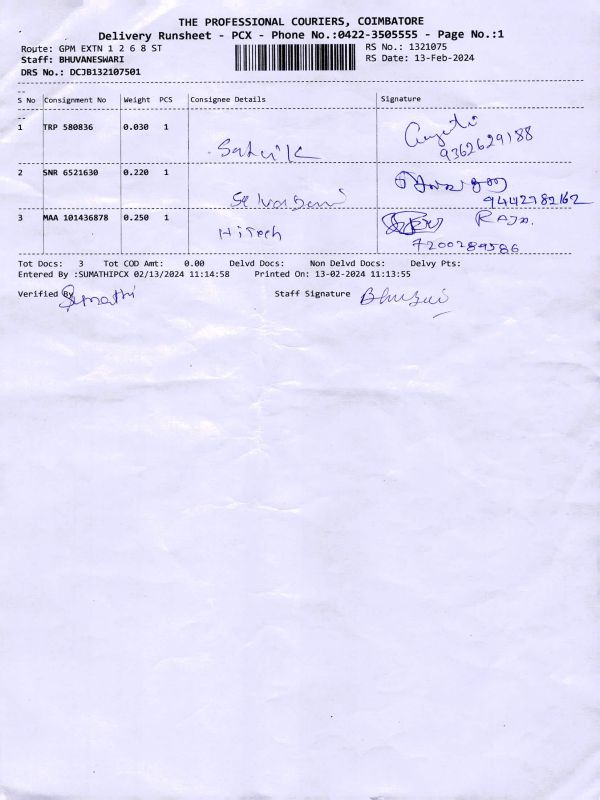 THE PROFESSIONAL COURIERS, COIMBATORE
Delivery Runsheet - PCX - Phone No.:0422-3505555 - Page No.:1
Route: GPM EXTN 1 2 6 8 ST
RS No.: 1321075
Staff: BHUVANESWARI
RS Date: 13-Feb-2024
DRS No.: DCJB132107501
S No Consignment No Weight PCS Consignee Details Signature
1 TRP 580836 0.030 1
Satvik
9362629188
2 SNR 6521630 0.220 1
9442782162
3 MAA 101436878 0.250 1 HiTech RAJA.
7200289586
Tot Docs: 3 Tot COD Amt: 0.00 Delvd Docs: Non Delvd Docs: Delvy Pts:
Entered By :SUMATHIPCX 02/13/2024 11:14:58 Printed On: 13-02-2024 11:13:55
Verified By Sumathi Staff Signature